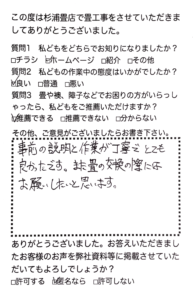 この度は杉浦畳店で畳工事をさせていただきま
してありがとうございました。
質問1　私どもをどちらでお知りになりましたか？
□チラシ　☑ホームページ　□紹介　□その他
質問2　私どもの作業中の態度はいかがでしたか？
☑良い　□普通　□悪い
質問3　畳や襖、障子などでお困りの方がいらっし
ゃったら、私どもをご推薦いただけますか？
☑推薦できる　□推薦できない　□分からない
その他、ご意見がございましたらお書き下さい。
事前の説明と作業が丁寧で とても
良かったです。また畳の交換の際には
お願いしたいと思います。
ありがとうございました。お答えいただきまし
たお客様のお声を弊社資料等に掲載させていた
だいてもよろしでしょうか？
□許可する　☑匿名なら　□許可しない